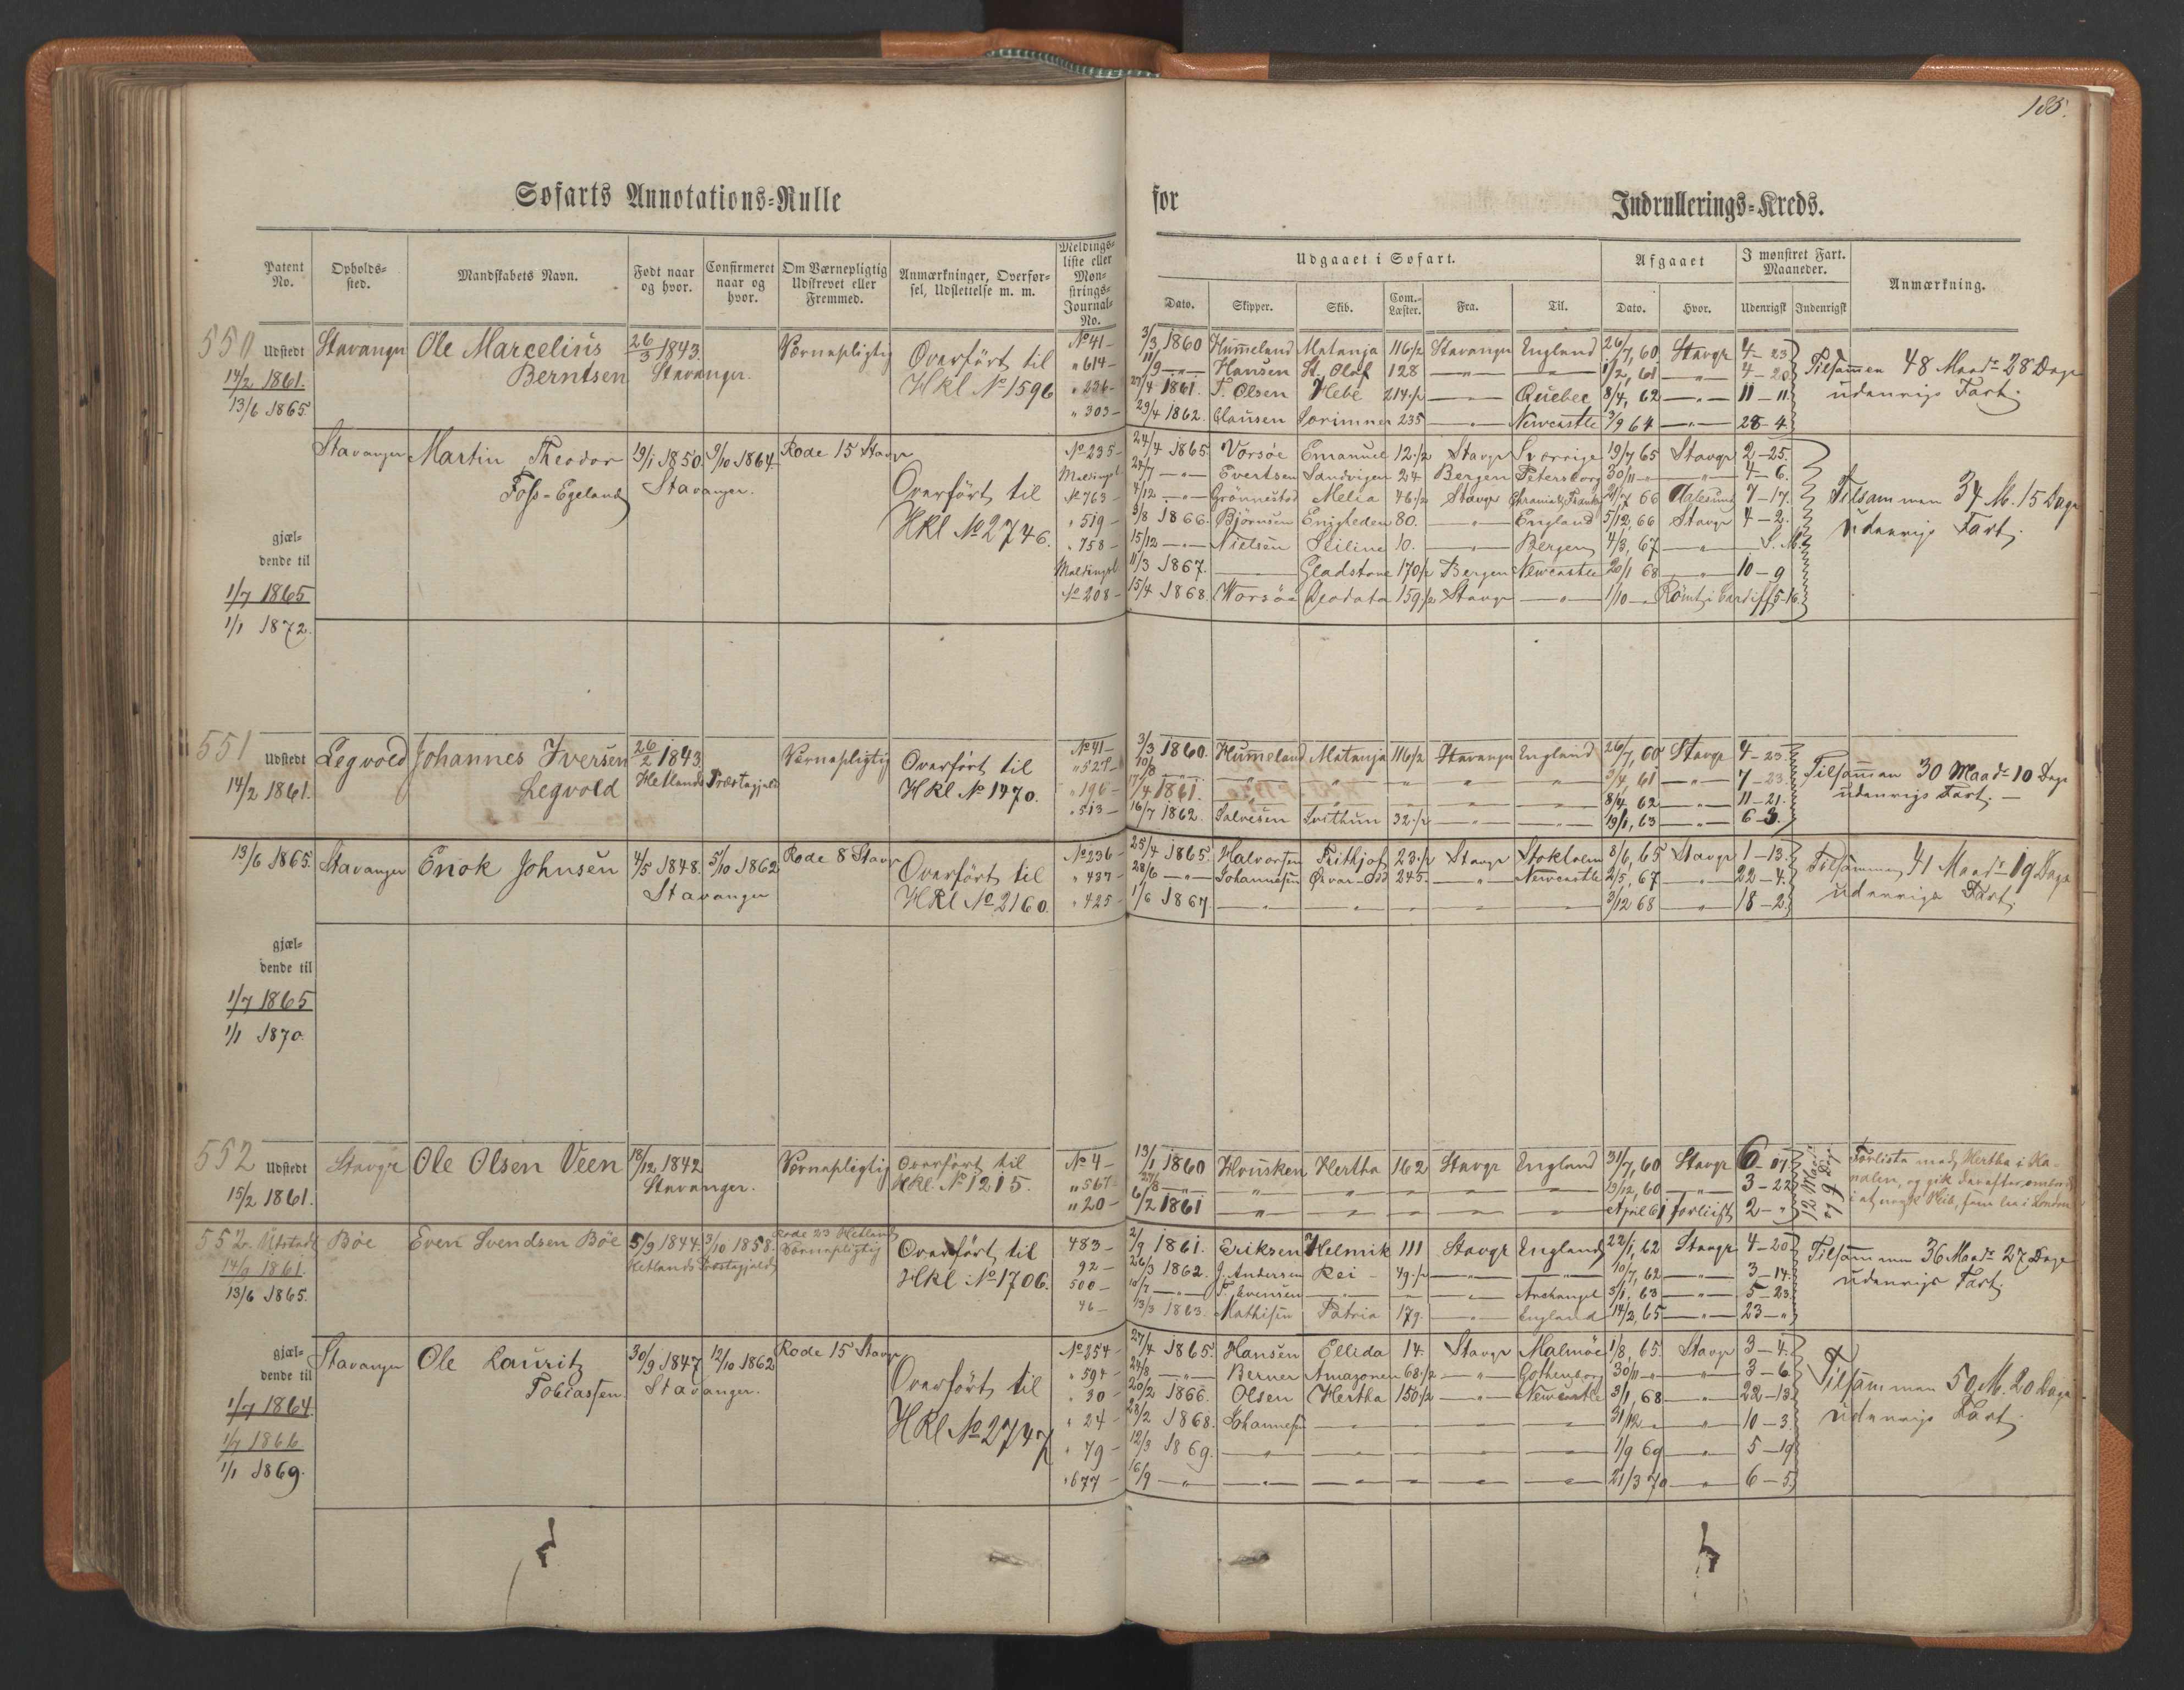 185.
Søfarts Annotations-Rulle for Indrullerings-Kreds.
Patent No. Opholds-sted. Mandskabets Navn. Født naar og hvor. Confirmeret naar og hvor. Om Værnepligtig Udskrevet eller Fremmed. Anmærkninger, Overfør-sel, Udslettelse m. m. Meldings-liste eller Møn-strings-Journal-No.
Udgaaet i Søfart. Afgaaet I mønstret Fart. Maaneder. Anmærkning.
Dato. Skipper. Skib. Com.-Læster. Fra. Til. Dato. Hvor. Udenrigsk Indenrigsk
550 Udstedt 14/2 1861. 13/6 1865.
Stavanger Ole Marcelius Berntsen 26/3 1843. Stavanger. Værnepligtig Overført til Hkl No 1596
No 41 - 3/3 1860 Hummeland Matanja 116 1/2 Stavanger England 26/7, 60 Stavgr 4 - 23
" 614 - 11/9 - " - Hansen St. Olaf 128 - " - - " - 1/2, 61 - " - 4 - 20
" 236 - 27/4 1861. T. Olsen Hebe 214 1/2 - " - Quebec 8/4, 62 - " - 11 - 11
" 303 - 29/4 1862. Clausen Sorimner 235 - " - Newcastle 3/9 64 - " - 28 - 4
Tilsammen 48 Maadr 28 Dage
udenrigs Fart.
Stavanger Martin Theodor Foss-Egeland 19/1 1850. Stavanger. 9/10 1864 Rode 15 Stavgr Overført til Hkl No 2746.
No 235 - 24/4 1865 Vorsøe Emanuel 12 1/2 Stavgr Sverrige 19/7 65 Stavgr 2 - 25.
Meldingsl 24/7 - " - Evertsen Sandvigen 24 Bergen Petersborg 30/11 - " - - " - 4 - 6.
No 763 - 4/12 - " - Grønnestad Melia 46 1/2 Stavgr 21/7 66 Aalesund 7 - 17.
" 519 - 3/8 1866. Bjørnsen Enigheden 80. - " - England 5/12, 66 Stavgr 4 - 2.
" 758 - 15/12 - " - Nielsen Seiline 10. - " - Bergen 4/3, 67 - " -
Meldingsl 11/3 1867. Gladstone 170 1/2 Bergen Newcastle 20/1 68 - " - 10 - 9
No 208 - 15/4 1868. Worsøe Deodata 159 1/2 Stavgr - " - 1/10 - " Rømt i Cardiff 5-16.
Tilsammen 34 M. 15 Dage
udenrigs Fart.
gjæl-
dende til
1/7 1865
1/1 1872.
551 Udstedt 14/2 1861.
Legvold Johannes Iversen Legvold 26/2 1843 Hetlands Præstegjeld Værnepligtig Overført til Hkl No 1470.
No 41 - 3/3 1860. Hummeland Matanja 116 1/2 Stavanger England 26/7, 60 Stavgr 4 - 23.
" 527 - 20/8 - " - " " " " " 3/4, 61 - " - 7 - 23
" 196 - 17/4 1861. " " " " " 8/4, 62 - " - 11 - 21.
" 513 - 16/7 1862. Salvesen Svithun 32 1/2 - " - - " - 19/1, 63 - " - 6 - 3.
Tilsammen 30 Maadr 10 Dage
udenrigs Fart. -
13/6 1865. Stavanger Enok Johnsen 4/5 1848. Stavanger 5/10 1862 Rode 8 Stavgr Overført til Hkl No 2160.
No 236 - 25/4 1865. Halvorsen Frithjof 23 1/2 Stavgr Stokholm 8/6, 65 Stavgr 1 - 13.
" 437 - 28/6 - " - Johannesen Ørvar-Od 245. - " - Newcastle 2/5, 67 - " - 22 - 4.
" 425 - 1/6 1867. - " - - " - - " - - " - - " - 3/12 68 - " - 18 - 2.
Tilsammen 41 Maadr 19 Dage
udenrigs Fart.
gjæl-
dende til
1/7 1865
1/1 1870.
552 Udstedt 15/2 1861.
Stavgr Ole Olsen Veen 18/12 1842 Stavanger. Værnepligtig Overført til Hkl. No 1215.
No 4 - 13/1 1860 Housken Hertha 162 Stavgr England 31/7, 60 Stavgr 6 - 07
" 567 - 27/8 - " - " " " " " 19/12, 60 " 3 - 22
" 20 - 6/2 1861 " " " " " April 61 forliist 2 - "
12 Maadr
29 Dage
Forliste med Hertha i Ka-
nalen, og gik derefter ombord
i et engsk Skib, som laa i London
552a Udstedt 14/9 1861. 13/6 1865.
Bøe Even Svendsen Bøe 5/9 1844. Hetlands Præstegjeld 3/10 1858. Rode 23 Hetland Værnepligtig Overført til Hkl No 1706.
483 - 2/9 1861. Eriksen Helmik 111 Stavgr England 22/1, 62 Stavgr 4 - 20
92 - 26/3 1862. J. Andersen Rei - 49 1/2 - " - - " - 10/7, 62 - " - 3 - 14.
500 - 18/7 - " - T. Evensen - " - - " - - " - Archangel 3/1, 63 - " - 5 - 23.
46 - 13/3 1863. Mathisen Patria 179. - " - England 14/2, 65 - " - 23 - "
Tilsammen 36 Maadr 27 Dage
udenrigs Fart.
gjæl-
dende til
1/7 1864.
1/7 1866.
1/1 1869.
Stavanger Ole Lauritz Tobiassen. 30/9 1847 Stavanger. 12/10 1862 Rode 15 Stavgr Overført til Hkl No 2747
No 254 - 27/4 1865. Hansen Ellida 14. Stavgr Malmøe 1/8, 65. Stavgr 3 - 4.
" 594 - 24/8 - " - Berner Amazonen 68 1/2 - " - Gothenborg 30/11 - " - - " - 3 - 6.
" 30 - 20/2 1866. Olsen Hertha 150 1/2 - " - Newcastle 3/1, 68 - " - 22 - 13.
" 24 - 28/2 1868. Johannesen - " - - " - - " - - " - 31/12 - " " 10 - 3.
" 79 - 12/3 1869. - " - - " - - " - - " - - " - 1/9 69 - " - 5 - 19
" 677 - 16/9 - " - - " - - " - - " - - " - - " - 21/3 70 - " - 6 - 5.
Tilsammen 50 M. 20 Dage
udenrigs Fart.